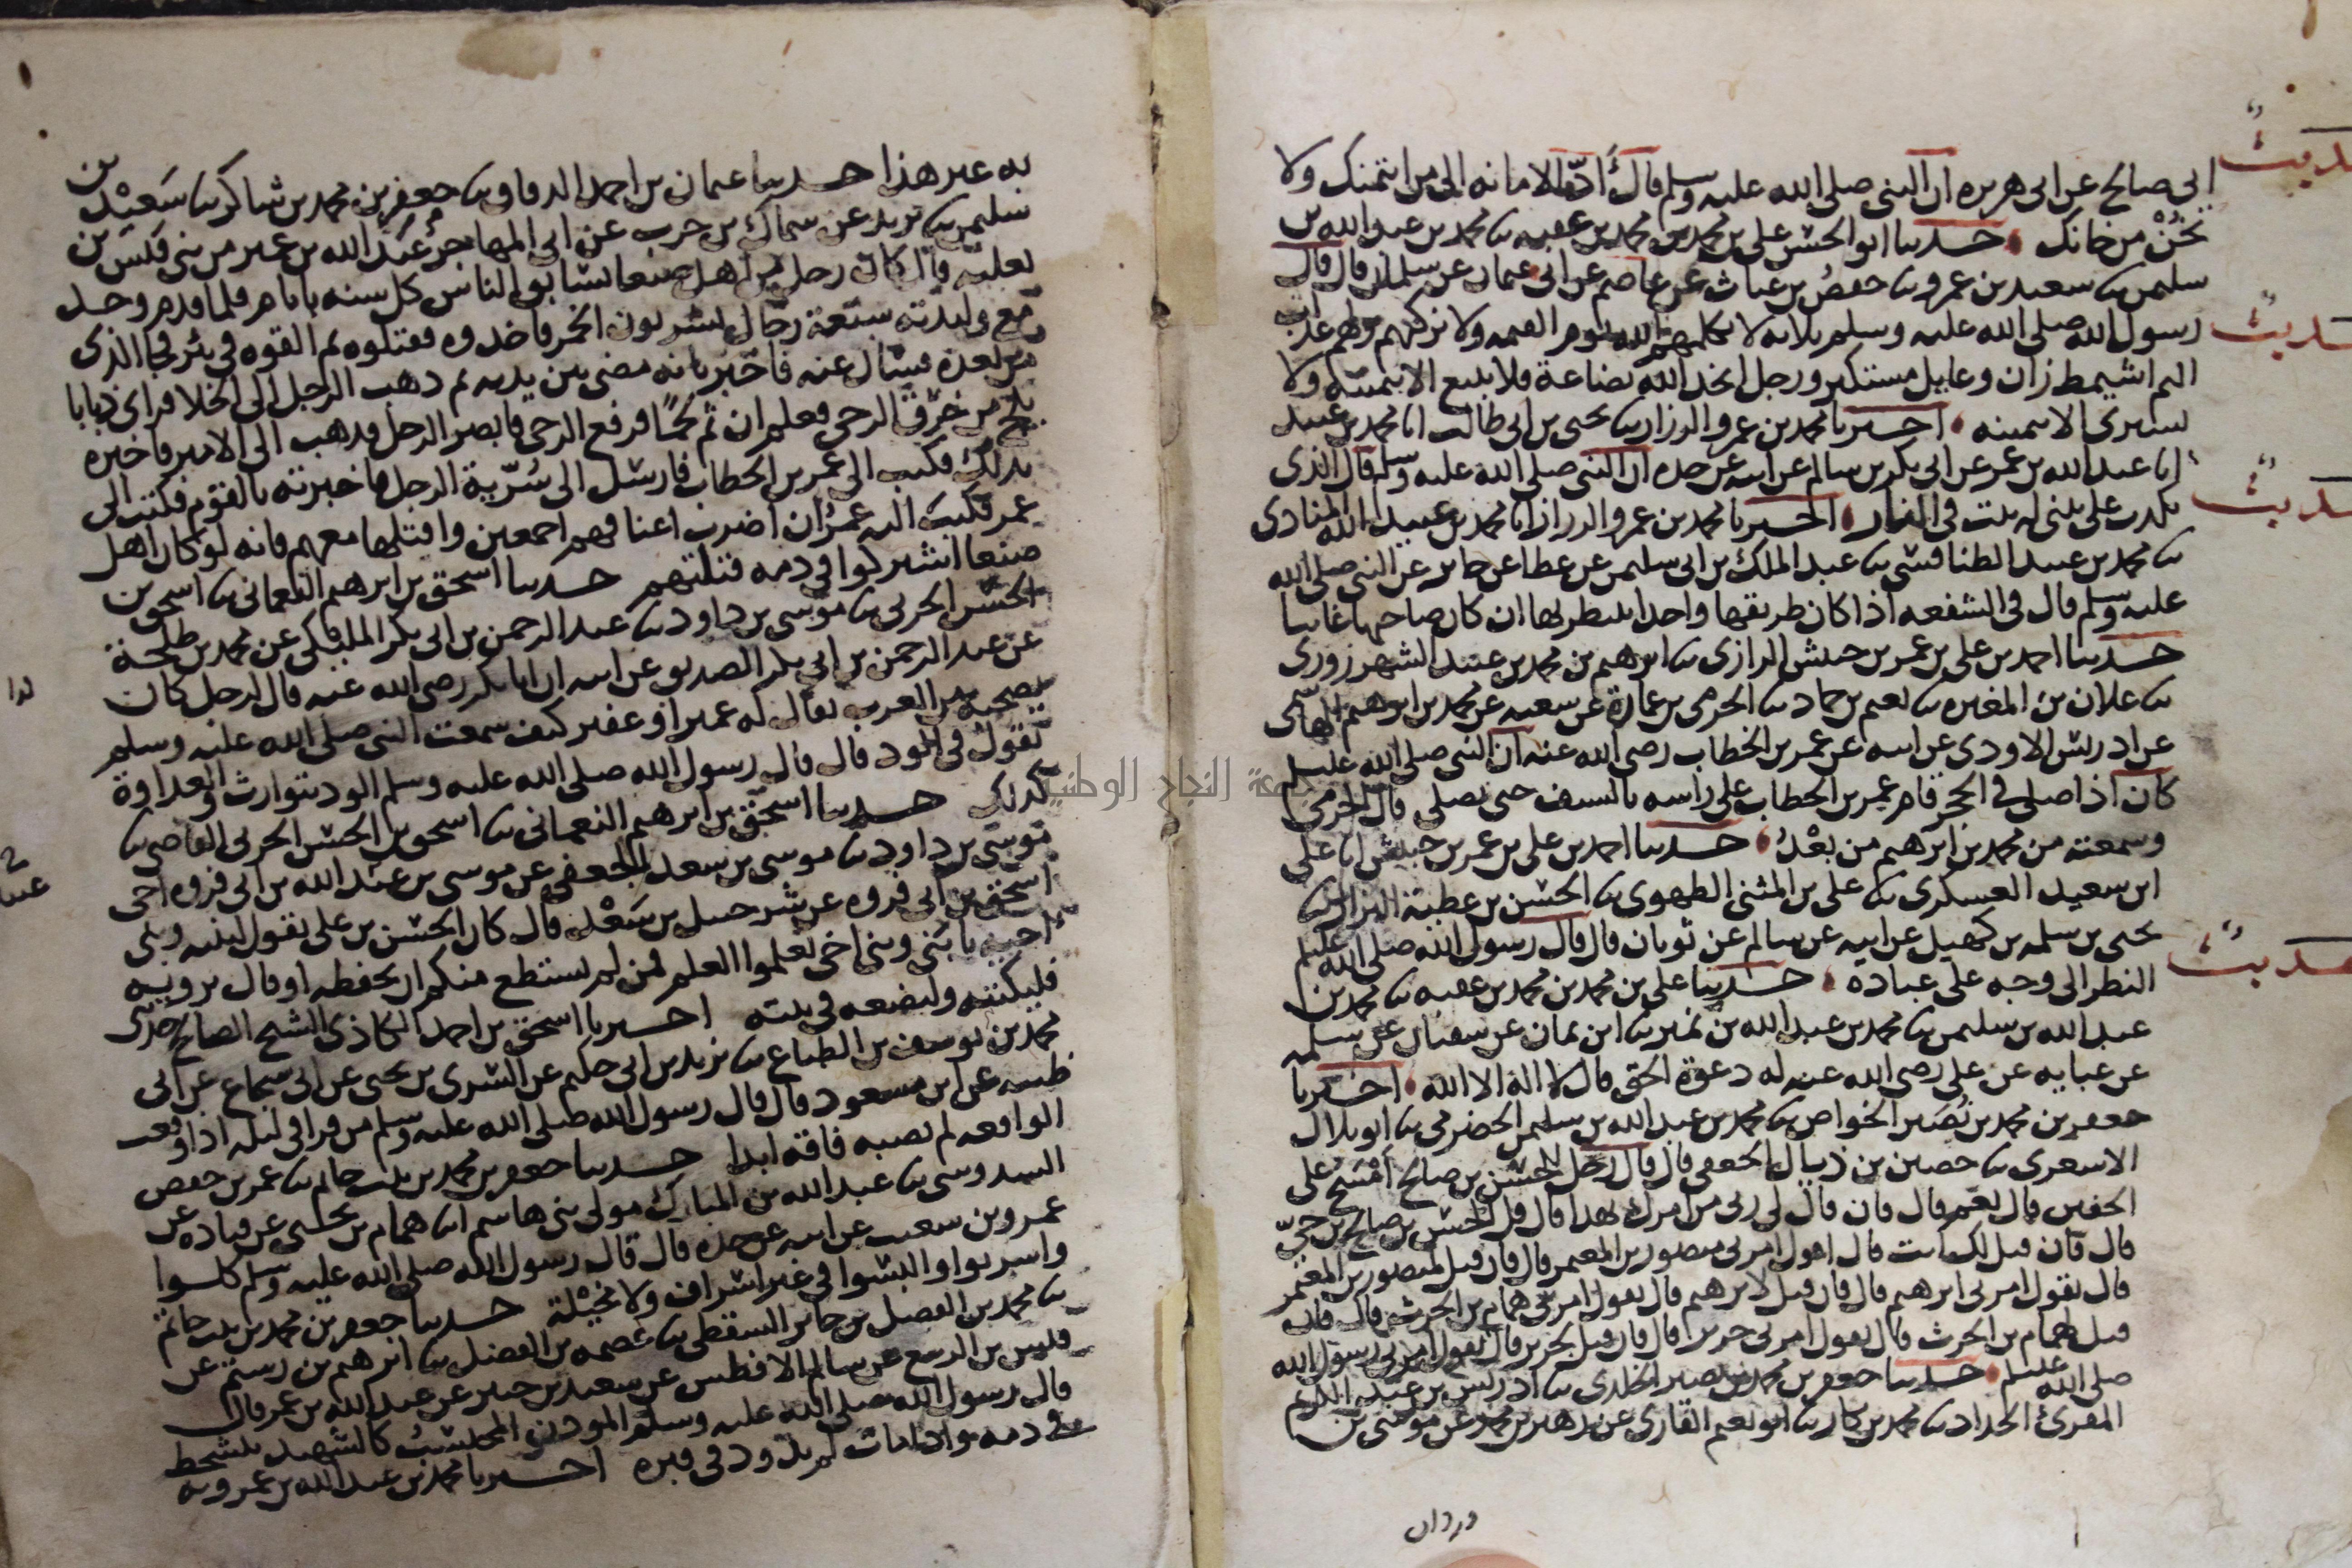 حديث
ابي صالح عن ابي هريره ان النبي صلى الله عليه وسلم قال أدّ الامانه الى من ائتمنك ولا
تخُنْ من خانك حدثنا ابو الحسن علي بن محمد بن محمد بن عقبه نا محمد بن عبد الله بن
سليمن نا سعيد بن عمرو نا حفص بن غياث عن عاصم عن ابي عثمان عن سلمان قال قال
حديث
رسول الله صلى الله عليه وسلم ثلاثه لا يكلمهم الله يوم القيمه ولا يزكيهم ولهم عذاب
اليم اشيمط زان وعايل مستكبر ورجل اتخذ الله بضاعة فلا يبيع الا بيمينه ولا
يشتري الا بيمينه اخبرنا محمد بن عمرو الرزاز نا يحيى بن ابي طالب انا محمد بن عبيد
حديث
انا عبد الله بن عمر عن ابي بكر بن سالم عن ابيه عن جده ان النبي صلى الله عليه وسلم قال الذي
يكذب علي يبنى له بيت في النار اخبرنا محمد بن عمرو الرزاز انا محمد بن عبيد الله المنادي
نا محمد بن عبيد الطنافسي نا عبد الملك بن ابي سليمن عن عطا عن جابر عن النبي صلى الله
عليه وسلم قال في الشفعه اذا كان طريقهما واحدا ينتظر بها ان كان صاحبها غائبا
حدثنا احمد بن علي بن عمر بن حبيش الرازي نا ابرهيم بن محمد بن عبيد الشهرزوري
نا علان بن المغيره نا نعيم بن حماد نا الحرمي بن عمارة عن سعيه عن محمد بن ابرهيم الهاشمي
عن ادريس الاودي عن ابيه عن عمر بن الخطاب رضي الله عنه ان النبي صلى الله عليه وسلم
كان اذا صلى في الحجر قام عمر بن الخطاب على راسه بالسيف حتى يصلي قال الحرمي
وسمعته من محمد بن ابرهيم من بعْدُ حدثنا احمد بن علي بن عمر بن حبيش انا علي
ابن سعيد العسكري نا علي بن المثنى الطهوي نا الحسن بن عطية البزاز نا
يحيى بن سلمه بن كهيل عن ابيه عن سالم عن ثوبان قال قال رسول الله صلى الله عليه وسلم
حديث
النظر الى وجه علي عباده حدثنا علي بن محمد بن محمد بن عقبه نا محمد بن
عبد الله بن سليمن نا محمد بن عبد الله بن نمير نا ابن يمان عن سفيان عن سلمه
عن عبايه عن علي رضي الله عنه له دعوة الحق قال لا اله الا الله اخبرنا
جعفر بن محمد بن نُصَير الخواص نا محمد بن عبد الله بن سليمن الحضرمي نا ابو بلال
الاسعري نا حصين بن ذيال الجعفي قال قال رجل للحسن بن صالح أمْسَحُ على
الخفين قال نعم قال فان قال لي ربي من امرك بهذا قال قل الحسن بن صالح بن حيّ
قال فان قيل لك انت قال اقول امرني منصور بن المعتمر قال فان قيل لمنصور بن المعتمر
قال يقول امرني ابرهيم قال فان قيل لابرهيم قال يقول امرني همام بن الحرث قال فان
قيل لهمام بن الحرث قال يقول امرني جرير قال فان قيل لجرير قال يقول امرني رسول الله
صلى الله عليه وسلم حدثنا جعفر بن محمد بن نصير الخلدي نا ادريس بن عبد الكريم
المقرئ الحداد نا محمد بن بكار نا ابو نعيم القاري عن زهير بن محمد عن موسى بن
وردان
به عير هذا حدثنا عثمان بن احمد الدقاق نا جعفر بن محمد بن شاكر نا سَعيْد بن
سليمن نا يزيد عن سماك بن حرب عن ابي المهاجر عبد الله بن عمير من بني قيس بن
ثعلبه قال كان رجل من اهل صنعا يسابق الناس كل سنه بايام فلما قدم وجد
مع وليدته سبعة رجال يشربون الخمر فاخذوه فقتلوه ثم القوه في بئر فجا الذي
من بعده فسال عنه فاخبر بانه مضى بين يديه ثم ذهب الرجل الى الخلا فراى ذبابا
يلج من خرق الرحى فعلم ان ثم لحمًا فرفع الرحى فابصر الرجل فذهب الى الامير فاخبره
بذلك فكتب الى عمر بن الخطاب فارسل الى سُرّية الرجل فاخبرته بالقوم فكتب الى
عمر فكتب اليه عمر ان اضرب اعناقهم اجمعين واقتلها معهم فانه لو كان اهل
صنعا اشتركوا في دمه قتلتهم حدثنا اسحق بن ابرهيم النعماني نا اسحق بن
الحسن الحربي نا موسى بن داود نا عبد الرحمن بن ابي بكر المليكي عن محمد بن طلحة
عن عبد الرحمن بن ابي بكر الصديق عن ابيه ان ابا بكر رضي الله عنه قال لرجل كان
يصحبه من العرب يقال له عمير او عفير كيف سمعت النبي صلى الله عليه وسلم
يقول في الود قال قال رسول الله صلى الله عليه وسلم الود يتوارث والعداوة
كذلك حدثنا اسحق بن ابرهيم النعماني نا اسحق بن الحسن الحربي القاضي نا
موسى بن داود نا موسى بن سعد الجعفي عن موسى بن عبد الله بن ابي فروه اخي
اسحق بن ابي فروه عن شرحبيل بن سَعْد قال كان الحسن بن علي يقول لبنيه وبني
اخيه يا بَنيّ وبني اخي تعلموا العلم فمن لم يستطع منكم ان يحفظه او قال يرويه
فليكتبه وليضعه في بيته اخبرنا اسحق بن احمد الكاذي الشيخ الصالح حدثني
محمد بن يوسف بن الطباع نا يزيد بن ابي حكيم عن السري بن يحيى عن ابي شجاع عن ابي
ظبيه عن ابن مسعود قال قال رسول الله صلى الله عليه وسلم من قرا في ليله اذا وقعت
الواقعه لم تصبه فاقه ابدا حدثنا جعفر بن محمد بن بنت حاتم نا عمر بن حفص
السدوسي نا عبد الله بن المبارك مولى بني هاشم انا همام بن يحيى عن قتاده عن
عمرو بن سعيب عن ابيه عن جده قال قال رسول الله صلى الله عليه وسلم كلوا
واشربوا والبسوا في غير اسراف ولا مخيْلة حدثنا جعفر بن محمد بن بنت حاتم
نا محمد بن الفضل بن جابر السقطي نا عصمه بن الفضل نا ابرهيم بن رستم عن
قيس بن الربيع عن سالم الافطس عن سعيد بن جبير عن عبد الله بن عمر قال
قال رسول الله صلى الله عليه وسلم المؤذن المحتسب كالشهيد يتشحط
في دمه واذا مات لم يدود في قبره اخبرنا محمد بن عبد الله بن عمرويه
جامعة النجاح الوطنية